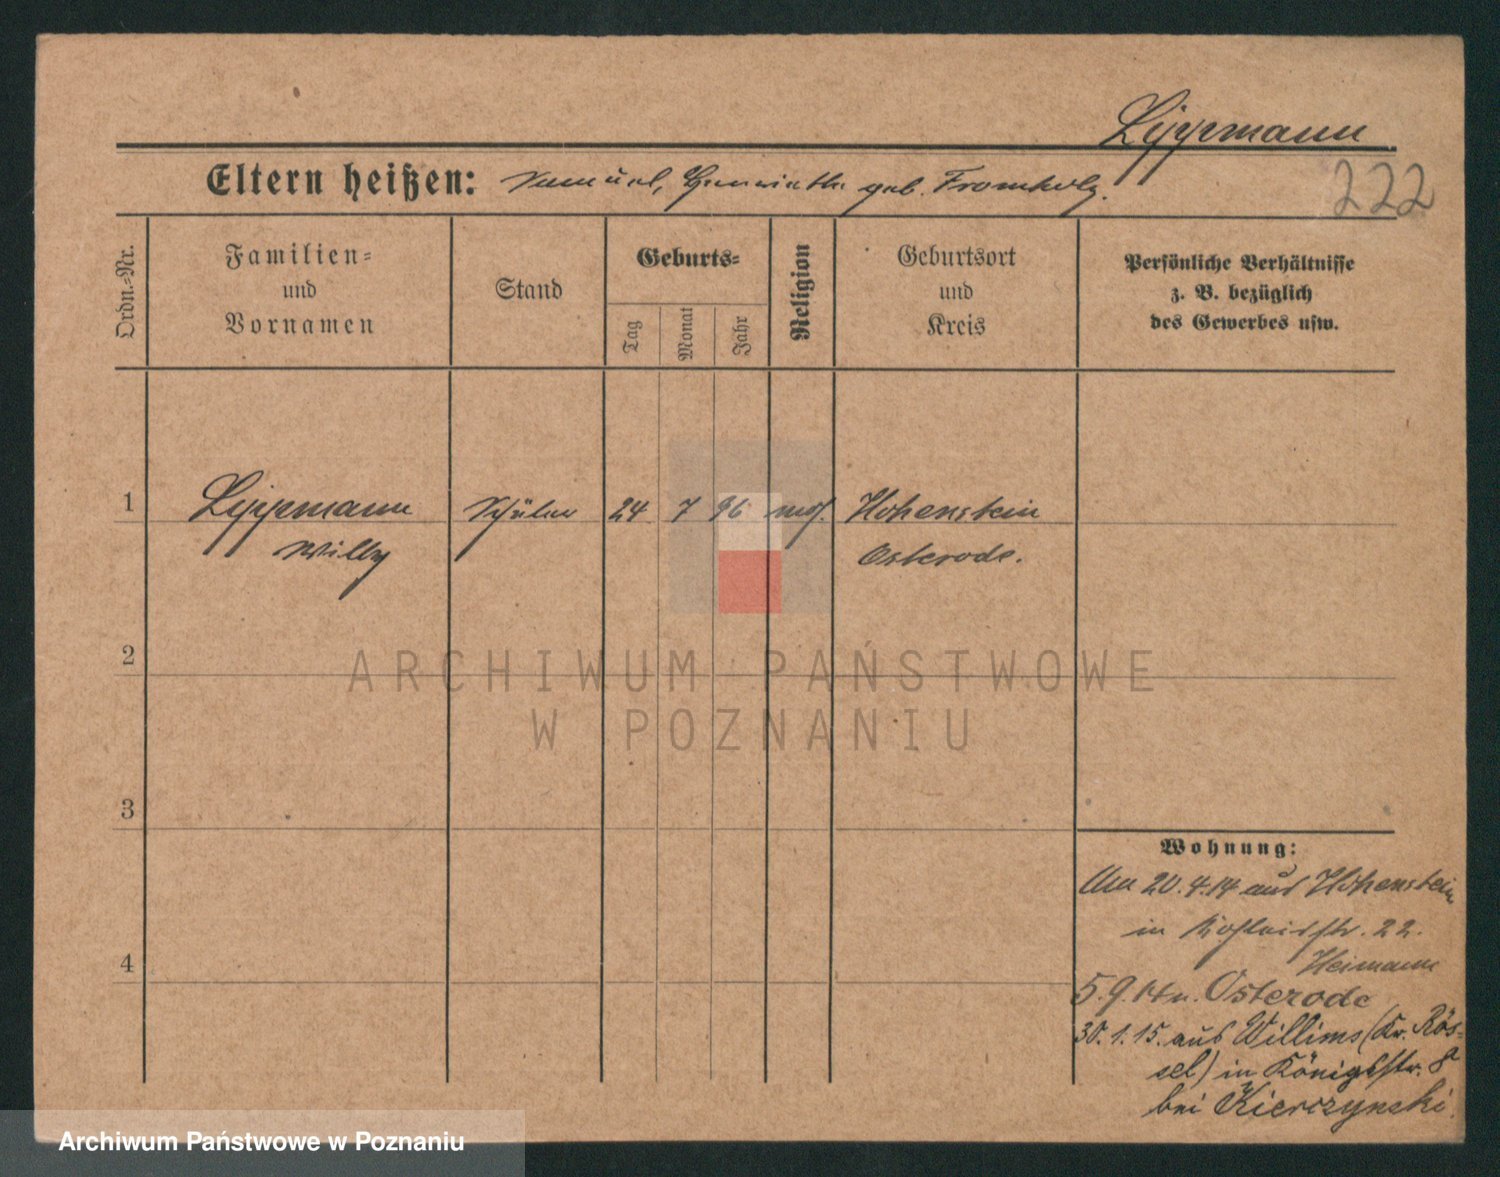 Lippmann
Eltern heißen: Samuel, Henriette geb. Fromholz.
222
Ordn.=Nr.
Familien=
und
Vornamen
Stand
Geburts=
Tag
Monat
Jahr
Religion
Geburtsort
und
Kreis
Persönliche Verhältnisse
z. B. bezüglich
des Gewerbes usw.
1 Lippmann Schüler 24 7 96 mos. Hohenstein
Willy Osterode.
2
3
4
ARCHIWUM PAŃSTWOWE
W POZNANIU
Wohnung:
20.4.14 aus Hohenstein
in 22.
Heimann
5.9.14 n. Osterode
30.1.15. aus Willims (Kr. Rös-
sel) in Königsstr. 8
bei Kierczynski.
Archiwum Państwowe w Poznaniu